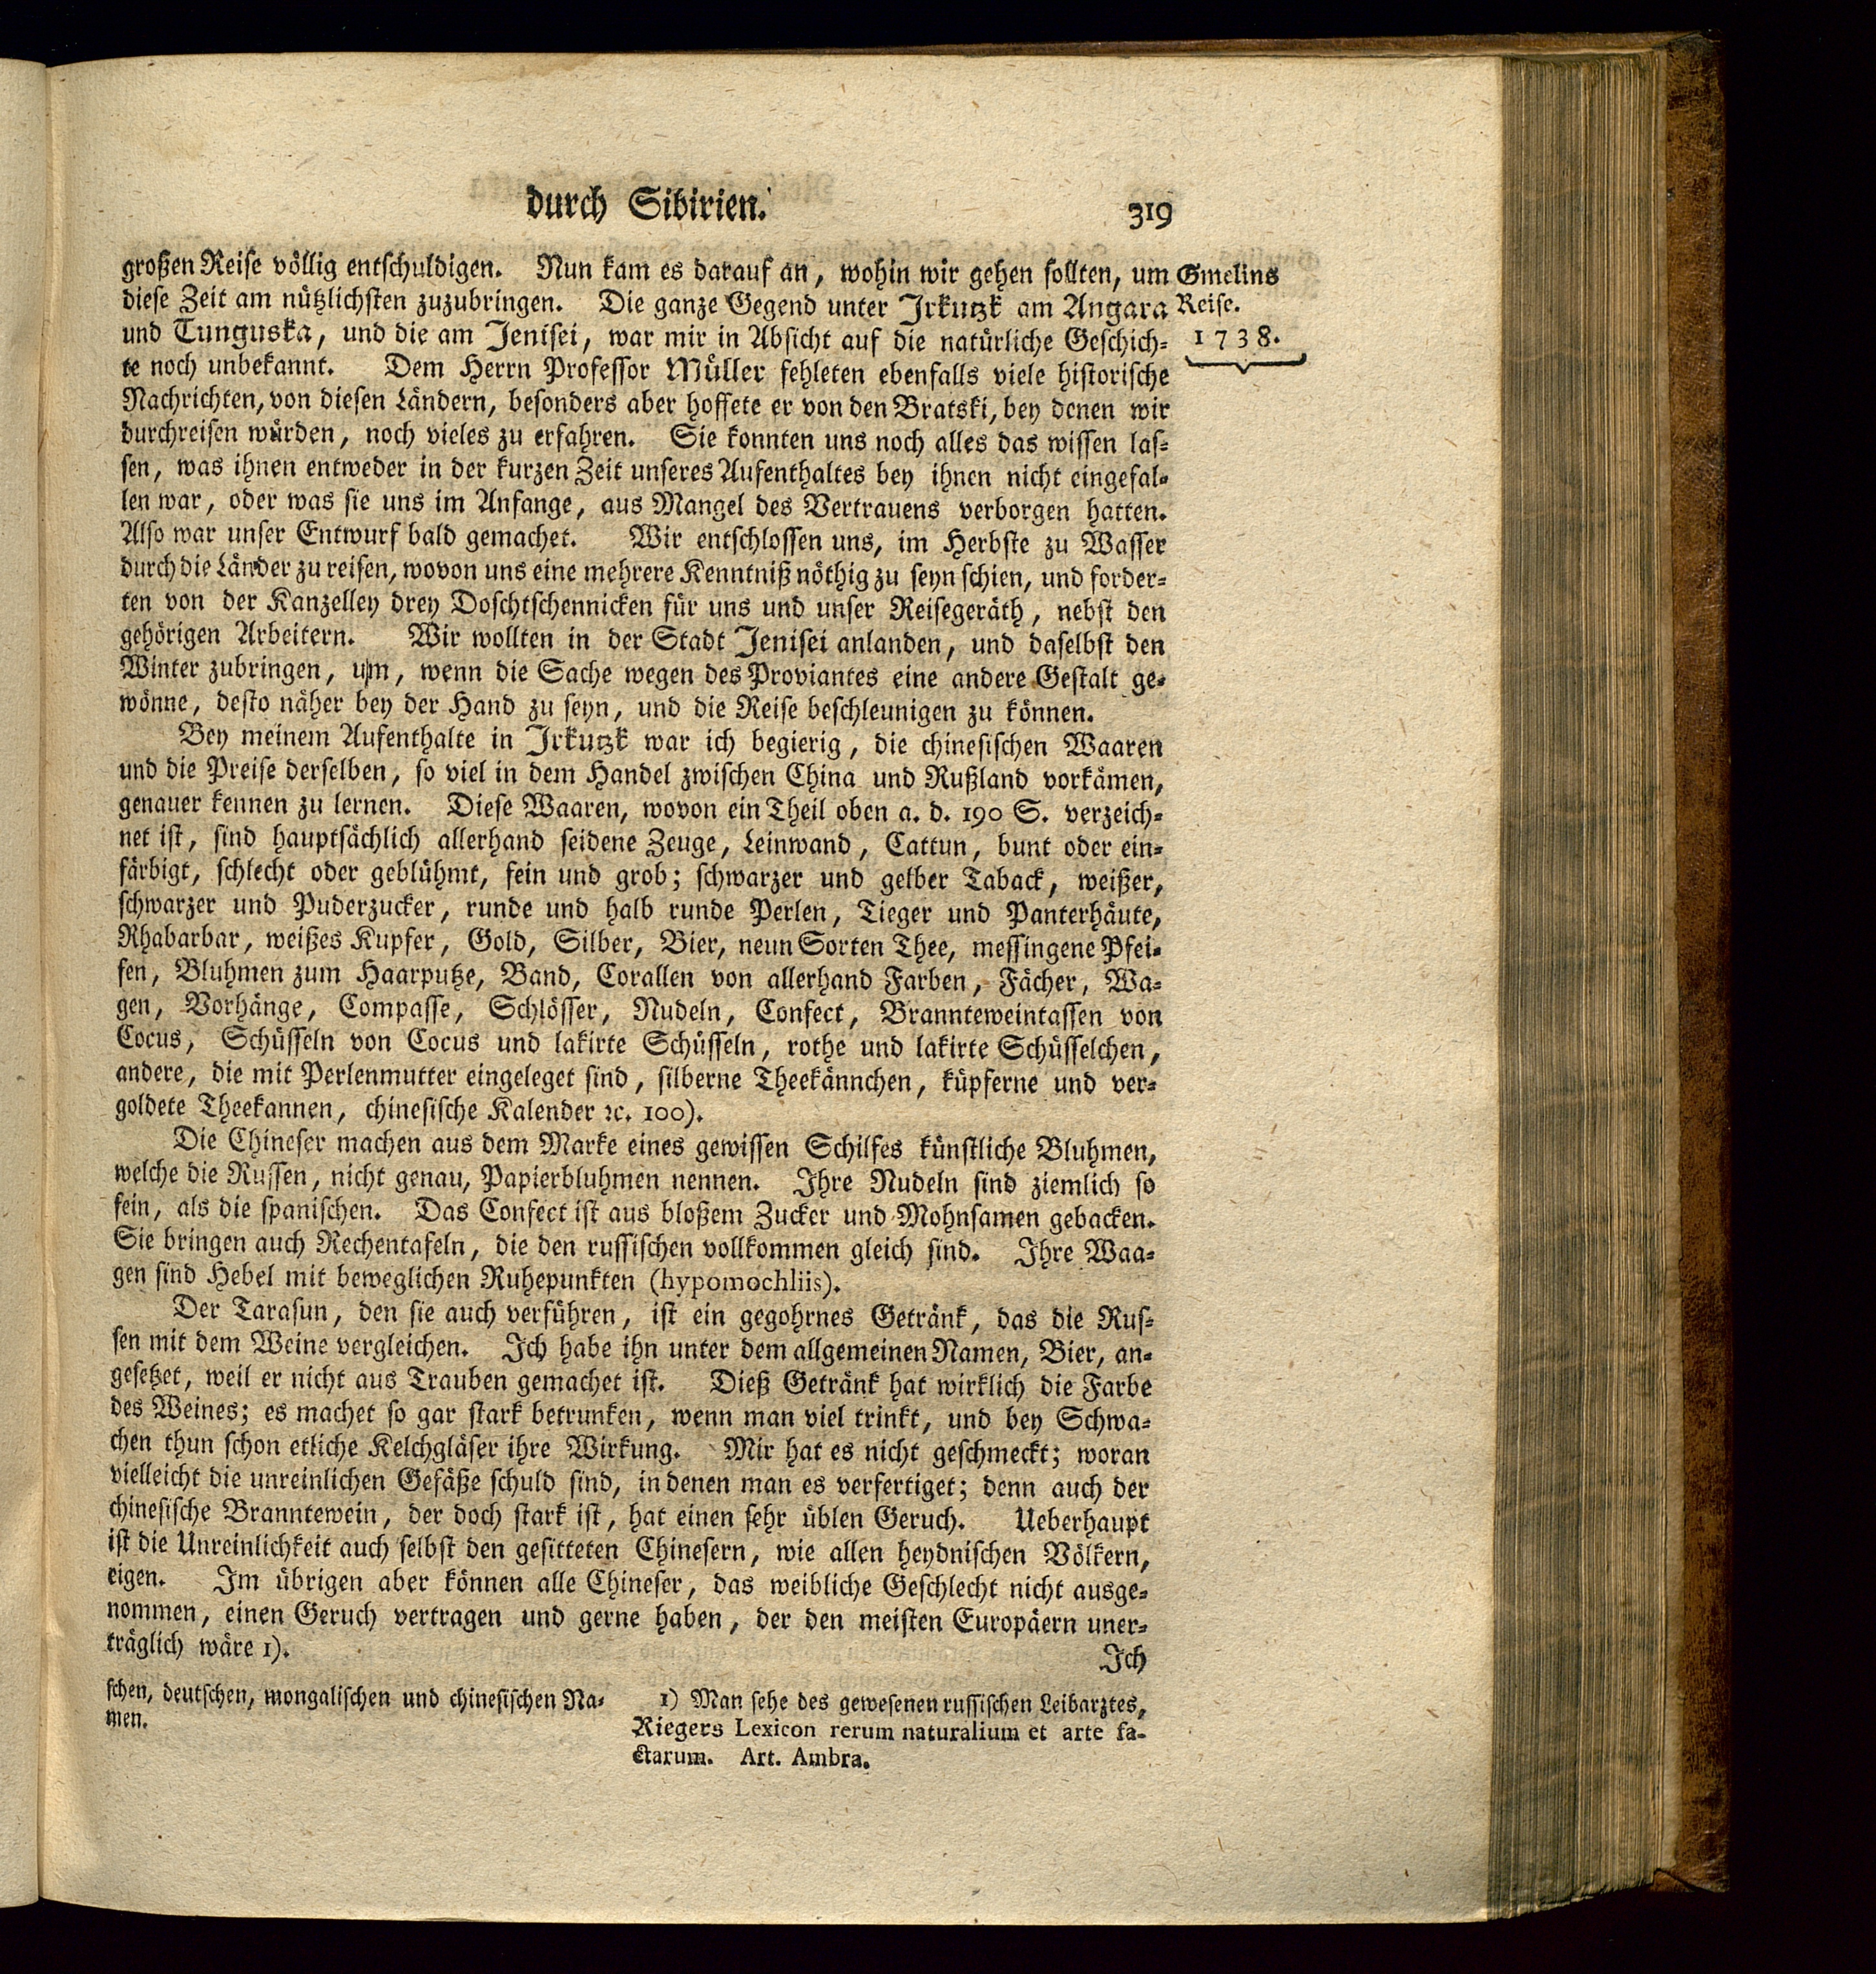 durch Sibirien. 319
großen Reise völlig entschuldigen. Nun kam es darauf an, wohin wir gehen sollten, um
diese Zeit am nützlichsten zuzubringen. Die ganze Gegend unter Irkutzk am Angara
und Tunguska, und die am Jenisei, war mir in Absicht auf die natürliche Geschich-
te noch unbekannt. Dem Herrn Professor Müller fehleten ebenfalls viele historische
Nachrichten, von diesen Ländern, besonders aber hoffete er von den Bratski, bey denen wir
durchreisen würden, noch vieles zu erfahren. Sie konnten uns noch alles das wissen las-
sen, was ihnen entweder in der kurzen Zeit unseres Aufenthaltes bey ihnen nicht eingefal-
len war, oder was sie uns im Anfange, aus Mangel des Vertrauens verborgen hatten.
Also war unser Entwurf bald gemachet. Wir entschlossen uns, im Herbste zu Wasser
durch die Länder zu reisen, wovon uns eine mehrere Kenntniß nöthig zu seyn schien, und forder-
ten von der Kanzelley drey Doschtschennicken für uns und unser Reisegeräth, nebst den
gehörigen Arbeitern. Wir wollten in der Stadt Jenisei anlanden, und daselbst den
Winter zubringen, um, wenn die Sache wegen des Proviantes eine andere Gestalt ge-
wönne, desto näher bey der Hand zu seyn, und die Reise beschleunigen zu können.
Bey meinem Aufenthalte in Irkutzk war ich begierig, die chinesischen Waaren
und die Preise derselben, so viel in dem Handel zwischen China und Rußland vorkämen,
genauer kennen zu lernen. Diese Waaren, wovon ein Theil oben a. d. 190 S. verzeich-
net ist, sind hauptsächlich allerhand seidene Zeuge, Leinwand, Cattun, bunt oder ein-
färbigt, schlecht oder geblühmt, fein und grob; schwarzer und gelber Taback, weißer,
schwarzer und Puderzucker, runde und halb runde Perlen, Tieger und Panterhäute,
Rhabarbar, weißes Kupfer, Gold, Silber, Bier, neun Sorten Thee, messingene Pfei-
fen, Bluhmen zum Haarputze, Band, Corallen von allerhand Farben, Fächer, Wa-
gen, Vorhänge, Compasse, Schlösser, Nudeln, Confect, Brannteweintassen von
Cocus, Schüsseln von Cocus und lakirte Schüsseln, rothe und lakirte Schüsselchen,
andere, die mit Perlenmutter eingeleget sind, silberne Theekännchen, küpferne und ver-
goldete Theekannen, chinesische Kalender ꝛc. 100).
Die Chineser machen aus dem Marke eines gewissen Schilfes künstliche Bluhmen,
welche die Russen, nicht genau, Papierbluhmen nennen. Ihre Nudeln sind ziemlich so
fein, als die spanischen. Das Confect ist aus bloßem Zucker und Mohnsamen gebacken.
Sie bringen auch Rechentafeln, die den russischen vollkommen gleich sind. Ihre Waa-
gen sind Hebel mit beweglichen Ruhepunkten (hypomochliis).
Der Tarasun, den sie auch verführen, ist ein gegohrnes Getränk, das die Rus-
sen mit dem Weine vergleichen. Ich habe ihn unter dem allgemeinen Namen, Bier, an-
gesetzet, weil er nicht aus Trauben gemachet ist. Dieß Getränk hat wirklich die Farbe
des Weines; es machet so gar stark betrunken, wenn man viel trinkt, und bey Schwa-
chen thun schon etliche Kelchgläser ihre Wirkung. Mir hat es nicht geschmeckt; woran
vielleicht die unreinlichen Gefäße schuld sind, in denen man es verfertiget; denn auch der
chinesische Branntewein, der doch stark ist, hat einen sehr üblen Geruch. Ueberhaupt
ist die Unreinlichkeit auch selbst den gesitteten Chinesern, wie allen heydnischen Völkern,
eigen. Im übrigen aber können alle Chineser, das weibliche Geschlecht nicht ausge-
nommen, einen Geruch vertragen und gerne haben, der den meisten Europäern uner-
träglich wäre 1).
Ich
Gmelins
Reise.
1738.
schen, deutschen, mongalischen und chinesischen Na-
men.
1) Man sehe des gewesenen russischen Leibarztes,
Riegers Lexicon rerum naturalium et arte fa-
ctarum. Art. Ambra.